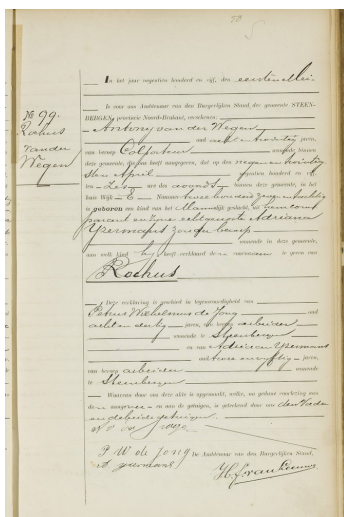 58
In het jaar negentien honderd en vijf, den eersten Mei
Nº 99.
Rochus
van der
Wegen
is voor ons Ambtenaar van den Burgerlijken Stand, der gemeente STEEN-
BERGEN, provincie Noord-Brabant, verschenen:
Antony van der Wegen
oud acht en twintig jaren,
van beroep Colporteur wonende binnen
deze gemeente, die ons heeft aangegeven, dat op den negen en twintig
sten April negentien honderd en vijf
ten zes ure des avonds binnen deze gemeente, in het
huis Wijk E Nummer twee honderd zeven en tachtig
is geboren een kind van het Mannelijk geslacht, uit hem com
parant en zijne echtgenoote Adriana
IJzermans zonder beroep
wonende in deze gemeente,
aan welk kind hij heeft verklaard den voornaam te geven van
Rochus
Deze verklaring is geschied in tegenwoordigheid van
Petrus Wilhelmus de Jong oud
acht en dertig jaren, van beroep arbeider
wonende te Steenbergen
en van Adriaan IJzermans
oud twee en vijftig jaren,
van beroep arbeider wonende
te Steenbergen
Waarvan door ons deze akte is opgemaakt, welke, na gedane voorlezing aan
den aangever en aan de getuigen, is geteekend door ons den Vader
en de beide getuigen
P W de Jong De Ambtenaar van den Burgerlijken Stand,
A ijzermans